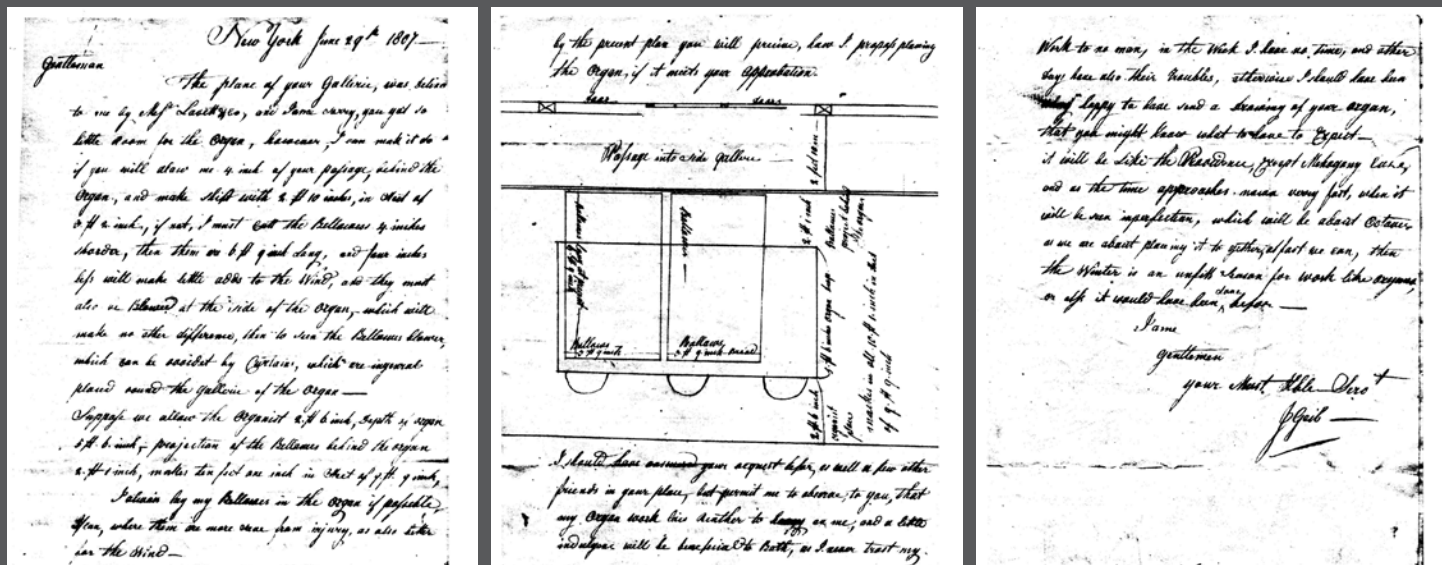 New York June 29th 1807—
Gentleman
The plane of your Gallerie, was
to me by and I ame you got so
little room for the Organ, however, I can make it do
if you will alow me 4 inch of your passage, behind the
Organ, and make shift with 2 ft 10 inches, in stret of
3 ft 2 inch, if not, I must cutt the Bellowses 4 inches
shorder, then them are 6 ft 9 inch Long, and four inches
less will make little adds to the Wind, as they must
also be Blowed at the side of the Organ, which will
make no other difference, then to seen the Bellowses blower,
which can be avoidet by Curtains, which are ingeneral
placed round the gallerie of the Organ—
Suppose we allow the Organist 2 ft 6 inch, Depth of organ
5 ft 6 inch, projection of the Bellowses behind the organ
2 ft 1 inch, makes ten feet one inch in stret of 9 ft 9 inch,
I my Bellowses in the Organ if possible,
where them are more from injury, as also better
for the Wind—
by the present plan you will how I propose planing
the Organ, if it meets your Approbation.
door doors
Passage into side gallerie—
2 feet
Bellowses Long at present
6 ft 9 inch
Bellowses—
2 ft 1 inch
Bellowses
project behind
the organ
Bellows
3 ft 9 inch
Bellows,
3 ft 9 inch
5 ft 6 inches organ
2 ft 6 inch
organist
place
makes in all 10 ft 1 inch in stret
of 9 ft 9 inch
I should have answered your request befor, as well a few other
friends in your place, but permit me to observe, to you, that
my Organ work lies to on me, and a little
indulgence will be beneficial to Both, as I never trust my
Work to no man, in the Week I have no time, and other
days have also their troubles, otherwise I should have been
happy to have send a drawing of your organ,
that you might know what to have to Expect—
it will be Like the Providence, Except Mahogany Case,
and as the time approaches very fast, when it
will be seen inperfection, which will be about October
as we are about planing it to gether, as fast we can, then
the Winter is an unfitt season for work like organs,
or else it would have been done befor—
I'ame
Gentlemen
your Most Hble Servt
J Geib—